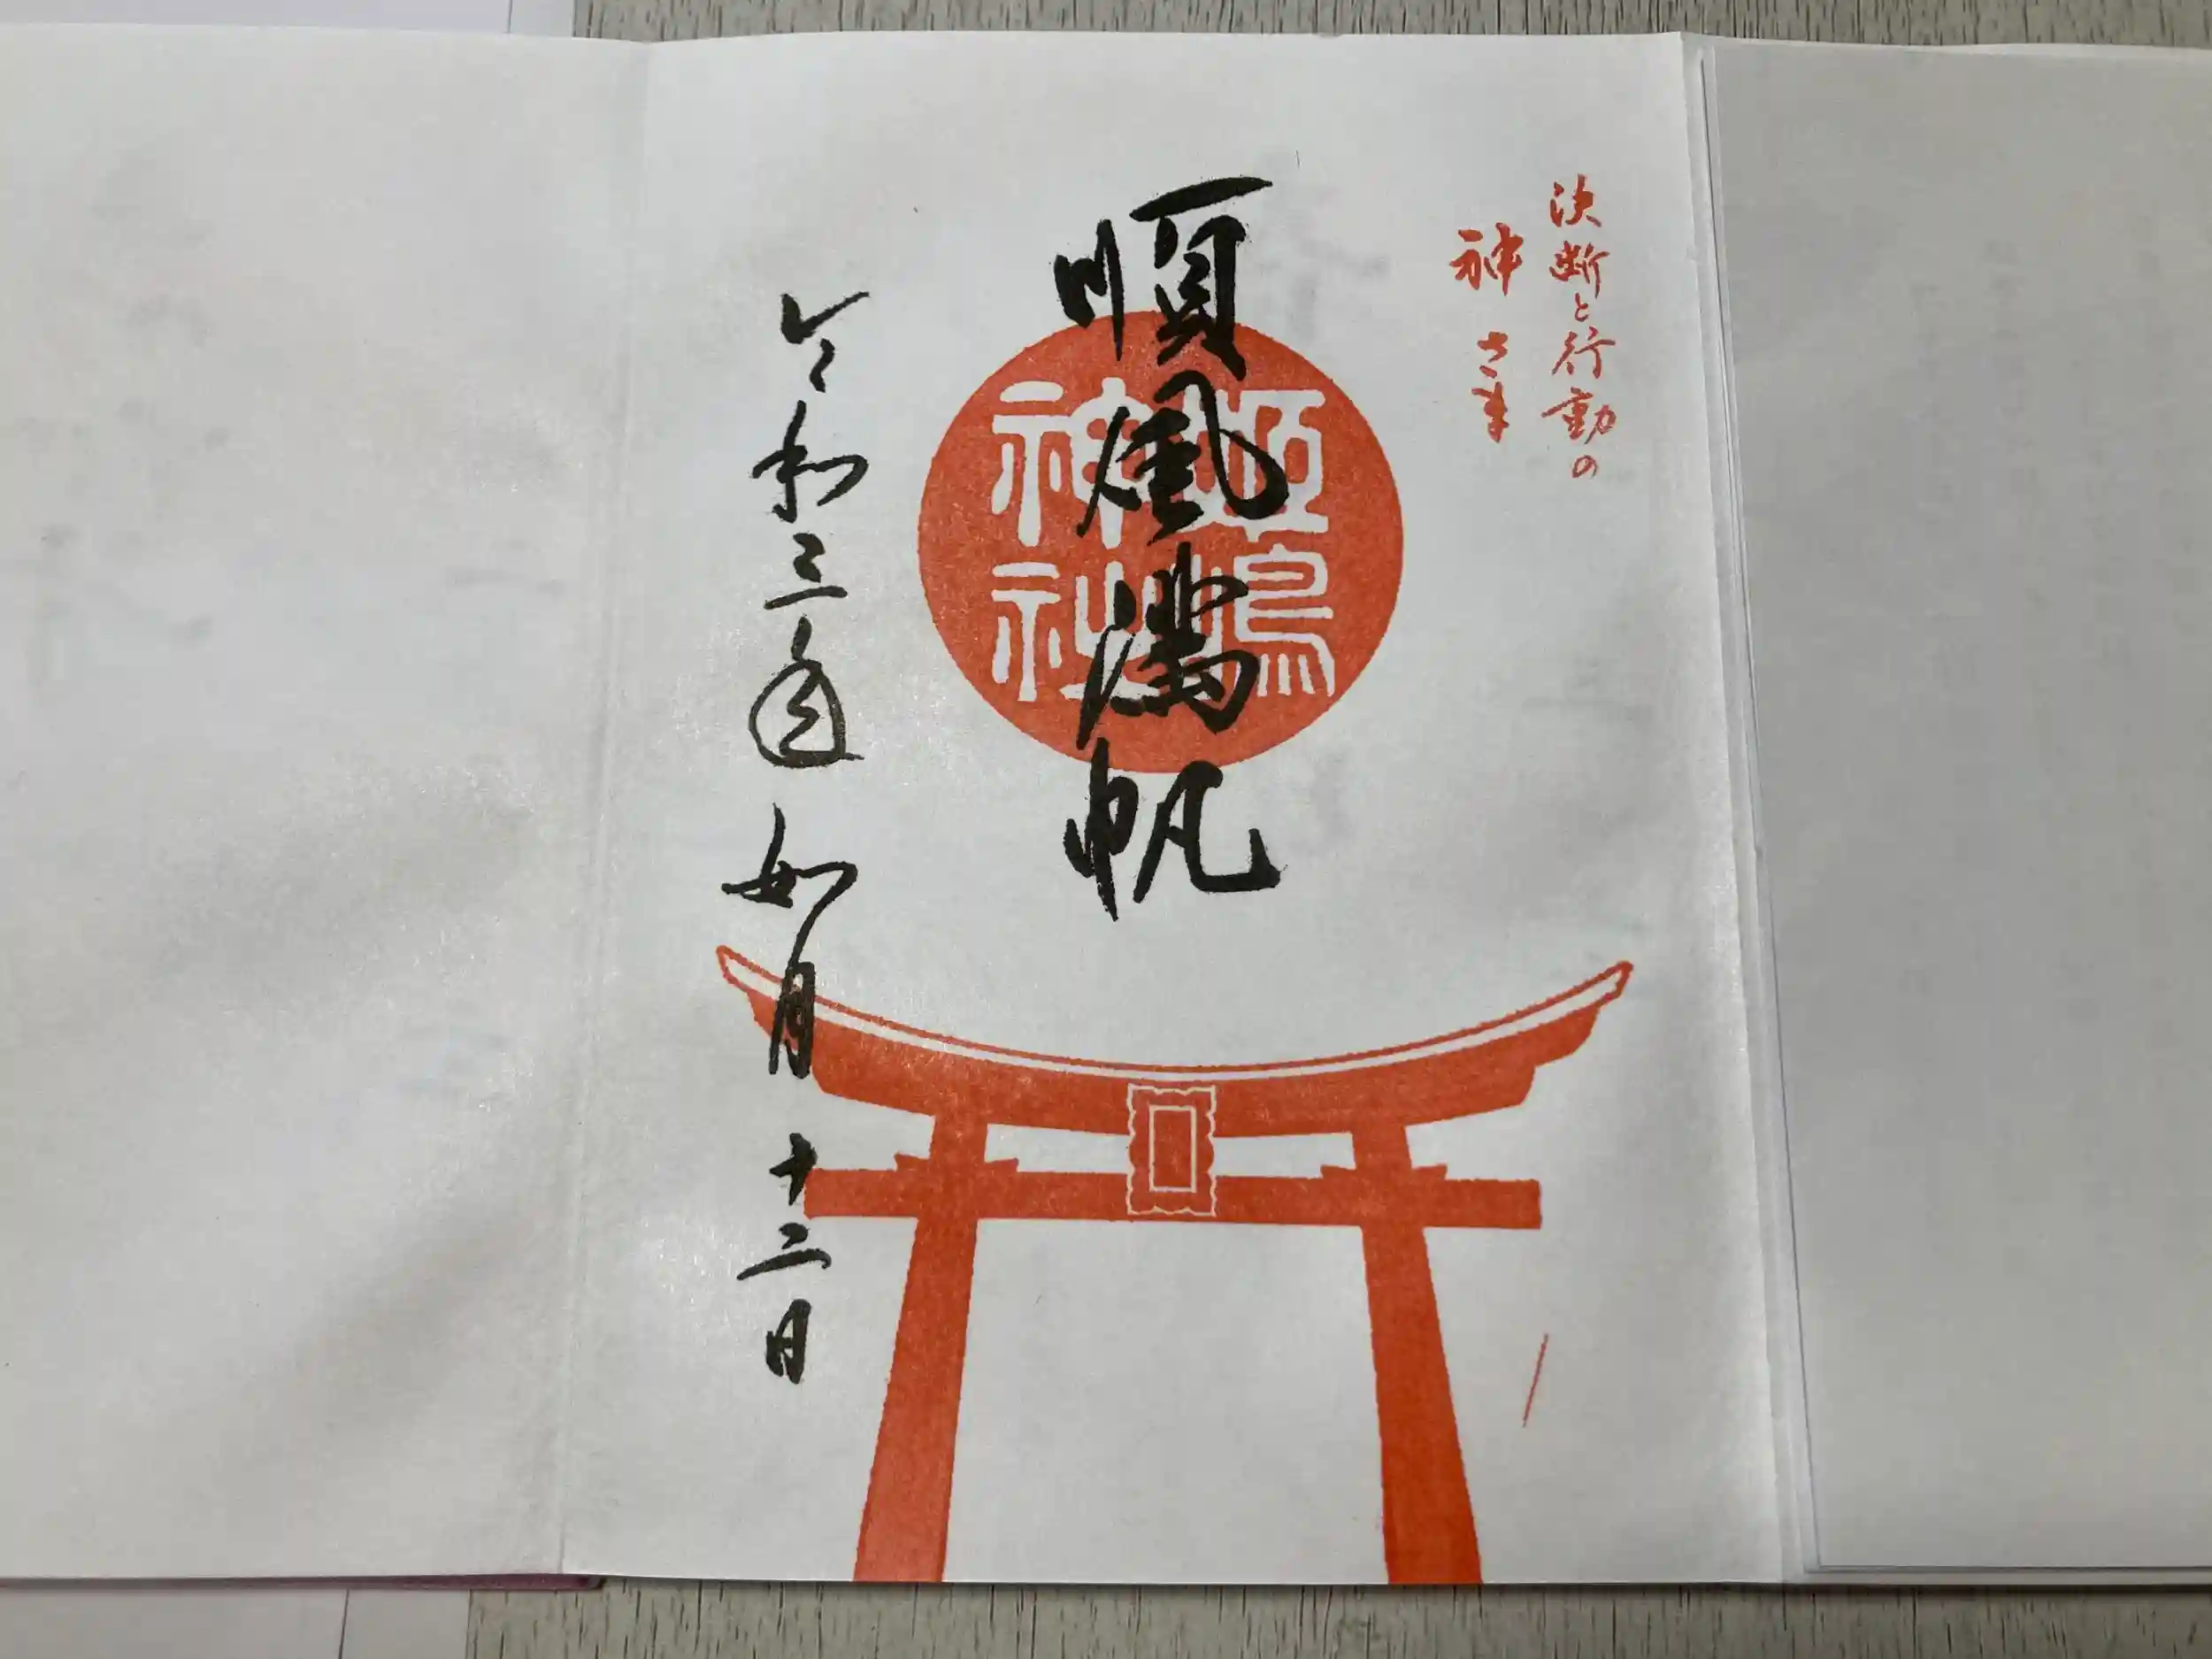 決断と行動の
神さま
順風満帆
姫嶋
神社
令和三年 如月 十二日